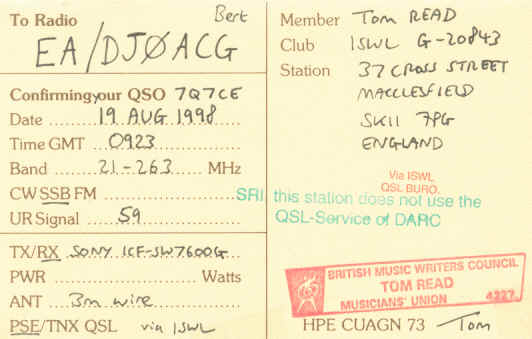 To Radio Bert
EA/DJØACG
Confirming your QSO 7Q7CE
Date 19 AUG 1998
Time GMT 0923
Band 21-263 MHz
CW SSB FM
UR Signal 59
TX/RX SONY ICF-SW7600G
PWR Watts
ANT 3m wire
PSE/TNX QSL via ISWL
Member Tom READ
Club ISWL G-20843
Station 37 CROSS STREET
MACCLESFIELD
SK11 7PG
ENGLAND
Via ISWL
QSL BURO.
SRI this station does not use the
QSL-Service of DARC
BRITISH MUSIC WRITERS COUNCIL
TOM READ
MUSICIANS' UNION 4227
HPE CUAGN 73 Tom